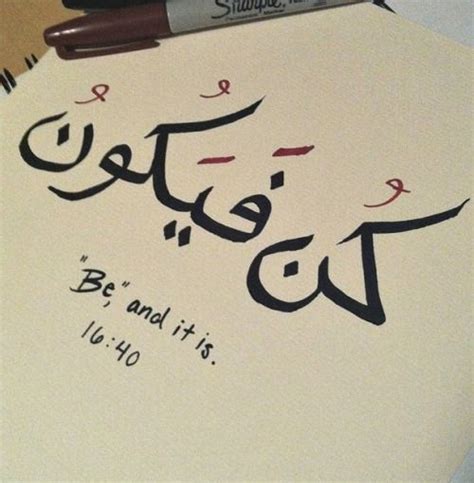 Sharpie
كُن فَيَكُونُ
"Be," and it is.
16:40